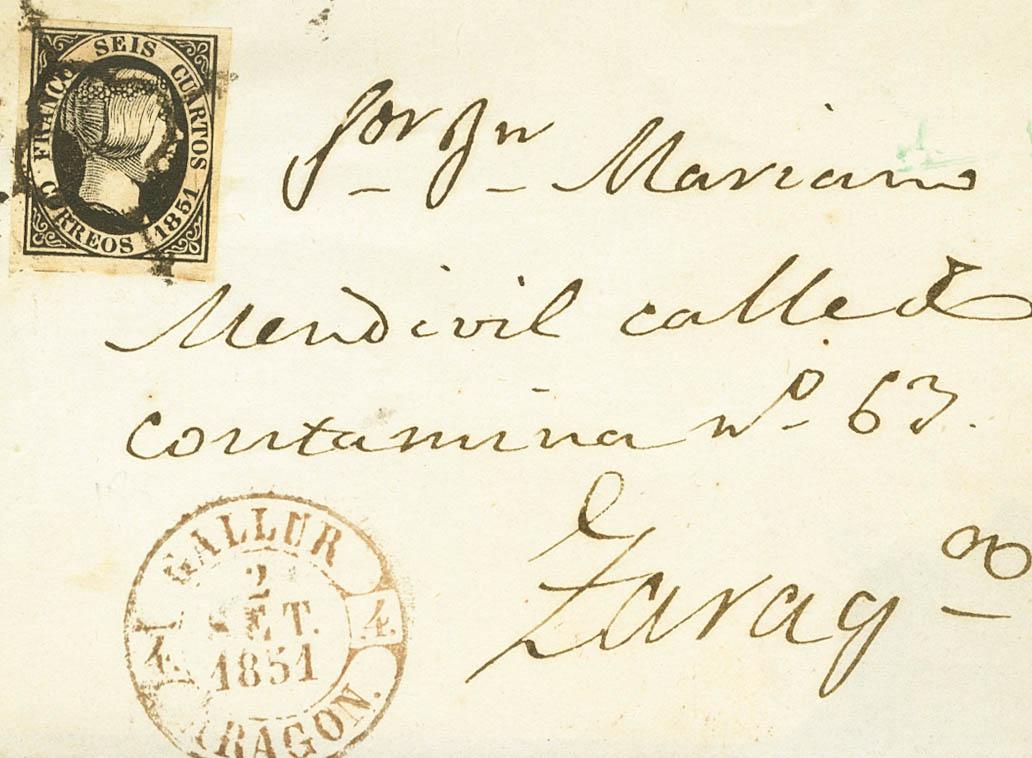 FRANCO SEIS CUARTOS
CORREOS 1851
Sor Dn Mariano
Mendivil calle d
contamina no 63.
Zaragoa
GALLUR
2
SET.
1851
4 4
ARAGON.